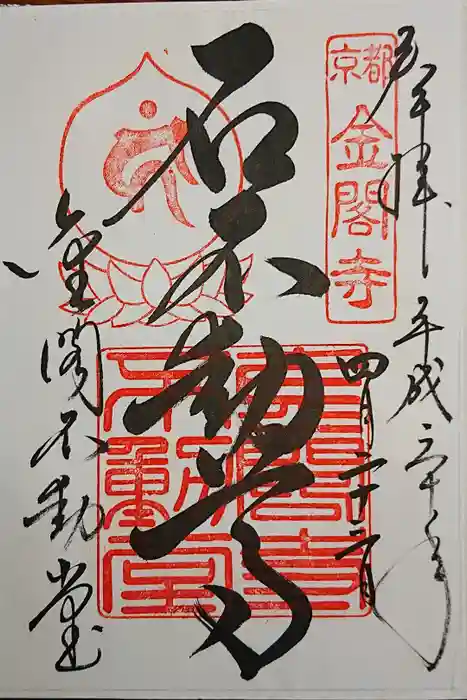 奉拝
平成三十年
四月二十二日
京都
金閣寺
石不動尊
金閣寺
不動堂
金閣不動堂